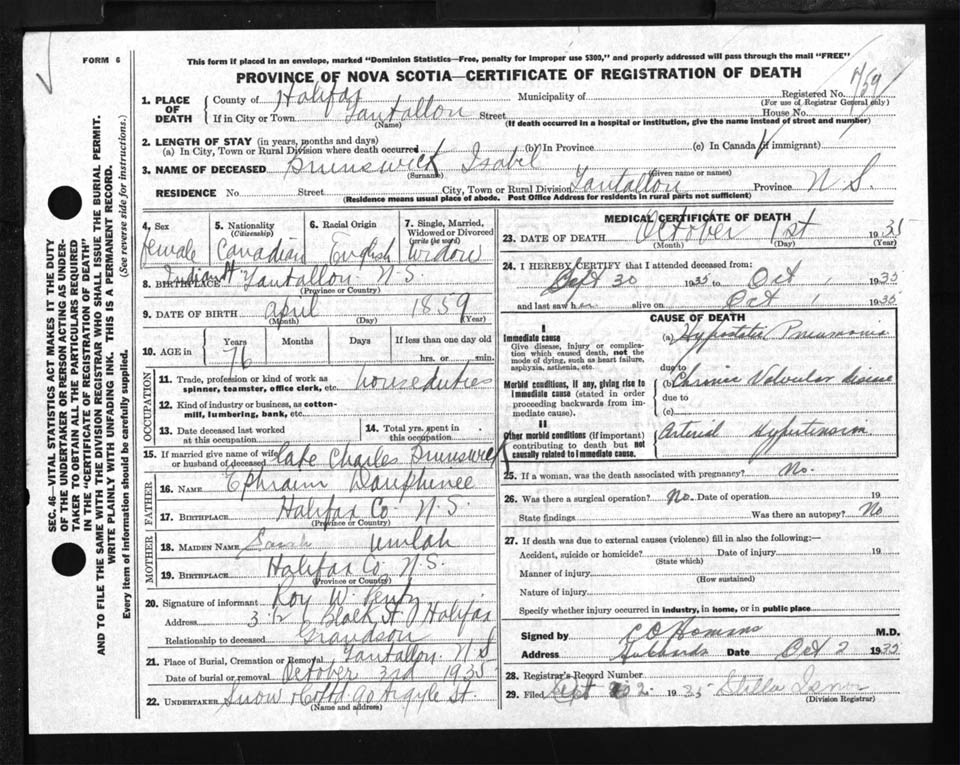 This form if placed in an envelope, marked "Dominion Statistics—Free, penalty for improper use $300," and properly addressed will pass through the mail "FREE"
FORM 6
PROVINCE OF NOVA SCOTIA—CERTIFICATE OF REGISTRATION OF DEATH
SEC. 46—VITAL STATISTICS ACT MAKES IT THE DUTY
OF THE UNDERTAKER OR PERSON ACTING AS UNDER-
TAKER TO OBTAIN ALL THE PARTICULARS REQUIRED
IN THE "CERTIFICATE OF REGISTRATION OF DEATH"
AND TO FILE THE SAME WITH THE DIVISION REGISTRAR WHO SHALL ISSUE THE BURIAL PERMIT.
WRITE PLAINLY WITH UNFADING INK. THIS IS A PERMANENT RECORD.
Every item of information should be carefully supplied. (See reverse side for instructions.)
1. PLACE OF DEATH
County of Halifax Municipality of Registered No.
(For use of Registrar General only)
If in City or Town Tantallon Street House No.
(Name) (If death occurred in a hospital or institution, give the name instead of street and number)
2. LENGTH OF STAY (in years, months and days)
(a) In City, Town or Rural Division where death occurred (b) In Province (c) In Canada (if immigrant)
3. NAME OF DECEASED Brunswick Isabel
(Surname) (Given name or names)
RESIDENCE No Street City, Town or Rural Division Tantallon Province N S.
(Residence means usual place of abode. Post Office Address for residents in rural parts not sufficient)
4. Sex 5. Nationality 6. Racial Origin 7. Single, Married,
(Citizenship) Widowed or Divorced
(write the word)
female Canadian English Widow
8. BIRTHPLACE Tantallon N S
(Province or Country)
9. DATE OF BIRTH April 1859
(Month) (Day) (Year)
10. AGE in Years Months Days If less than one day old
76 hrs. or min.
OCCUPATION
11. Trade, profession or kind of work as house duties
spinner, teamster, office clerk, etc.
12. Kind of industry or business, as cotton-
mill, lumbering, bank, etc.
13. Date deceased last worked at this occupation
14. Total yrs. spent in this occupation
15. If married give name of wife or husband of deceased late Charles Brunswick
FATHER
16. NAME Ephraim Dauphinee
17. BIRTHPLACE Halifax Co. N. S.
(Province or Country)
MOTHER
18. MAIDEN NAME Sarah Umlah
19. BIRTHPLACE Halifax Co. N.S.
(Province or Country)
20. Signature of informant Roy W.
Address Halifax
Relationship to deceased Grandson
21. Place of Burial, Cremation or Removal Tantallon. N S
Date of burial or removal October 3rd 1935
22. UNDERTAKER Snow & Co Ltd 90 Argyle St.
(Name and address)
MEDICAL CERTIFICATE OF DEATH
23. DATE OF DEATH October 1st 1935
(Month) (Day) (Year)
24. I HEREBY CERTIFY that I attended deceased from:
Sept 30 1935 to Oct 1 1935
and last saw her alive on Oct 1 1935
CAUSE OF DEATH
I
Immediate cause
Give disease, injury or complica-
tion which caused death, not the
mode of dying, such as heart failure,
asphyxia, asthenia, etc.
(a) Hypostatic Pneumonia
due to
Morbid conditions, if any, giving rise to
immediate cause (stated in order
proceeding backwards from im-
mediate cause).
(b) Chronic Valvular disease
due to
(c)
II
Other morbid conditions (if important)
contributing to death but not
causally related to immediate cause.
Arterial Hypertension
25. If a woman, was the death associated with pregnancy? No.
26. Was there a surgical operation? No. Date of operation 19
State findings Was there an autopsy? No
27. If death was due to external causes (violence) fill in also the following:—
Accident, suicide or homicide? Date of injury 19
(State which)
Manner of injury
(How sustained)
Nature of injury
Specify whether injury occurred in industry, in home, or in public place
Signed by M.D.
Address Hubbards Date Oct 2 1935
28. Registrar's Record Number
29. Filed 1935 Stella Isnor
(Division Registrar)